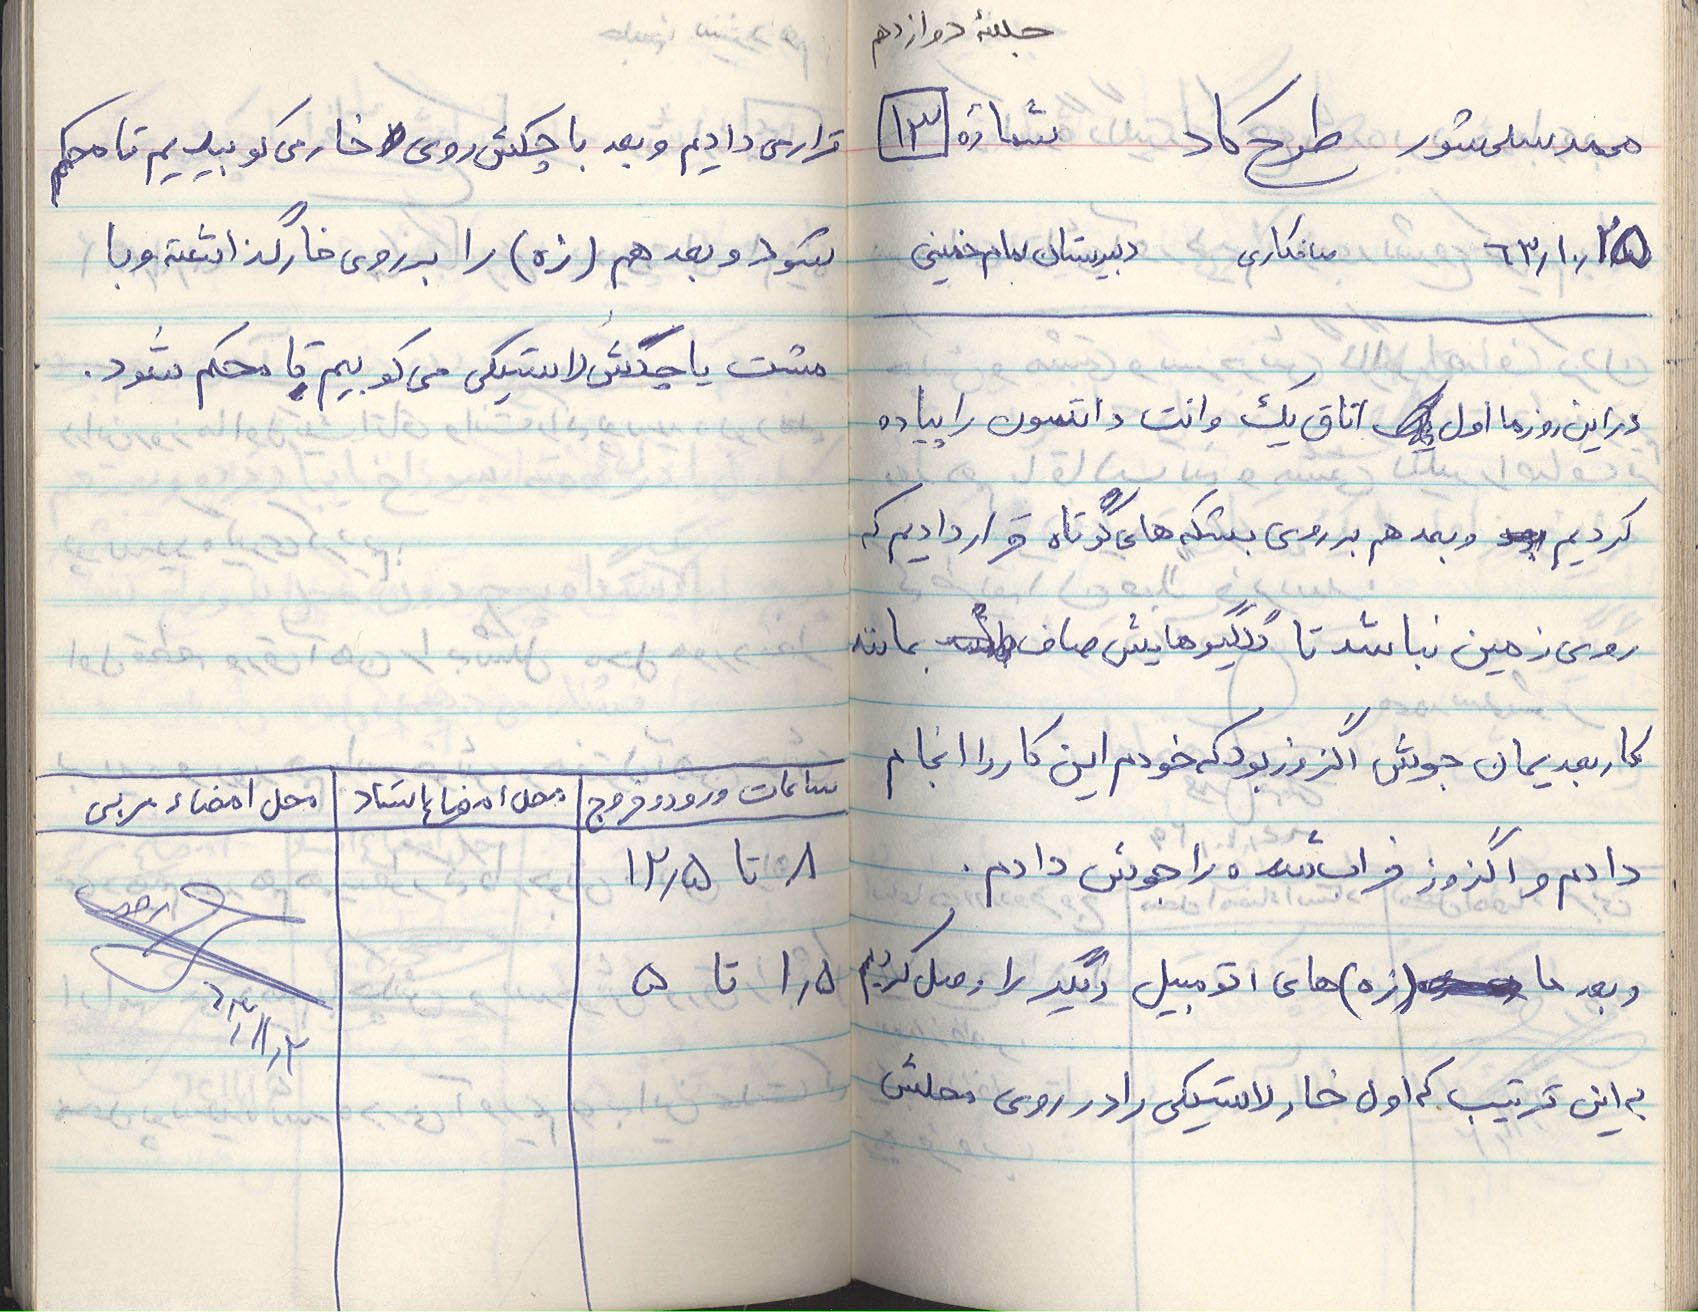 جلسهٔ دوازدهم
محمد سلمی‌شور طرح کاد شمارهٔ ۱۳
۶۳٫۱۰٫۲۵ صافکاری دبیرستان امام خمینی
در این روز ما اول اتاق یک وانت داتسون را پیاده
کردیم و بعد هم بر روی بشکه های کوتاه قرار دادیم که
روی زمین نباشد تا گلگیرهایش صاف بمانند
کار بعدیمان جوش اگزوز بود که خودم این کار را انجام
دادم و اگزوز خراب شده را جوش دادم.
و بعد ما (زه) های اتومبیل دیگر را وصل کردیم
به این ترتیب که اول خار لاستیکی را در روی محلش
قرار می دادیم و بعد با چکش روی خار می کوبیدیم تا محکم
شود و بعد هم (زه) را بر روی خار گذاشته و با
مشت یا چکش لاستیکی می کوبیم تا محکم شود.
ساعات ورود و خروج محل امضاء استاد محل امضاء مربی
۸ تا ۱۲٫۵
۱٫۵ تا ۵
۶۳٫۱۱٫۲